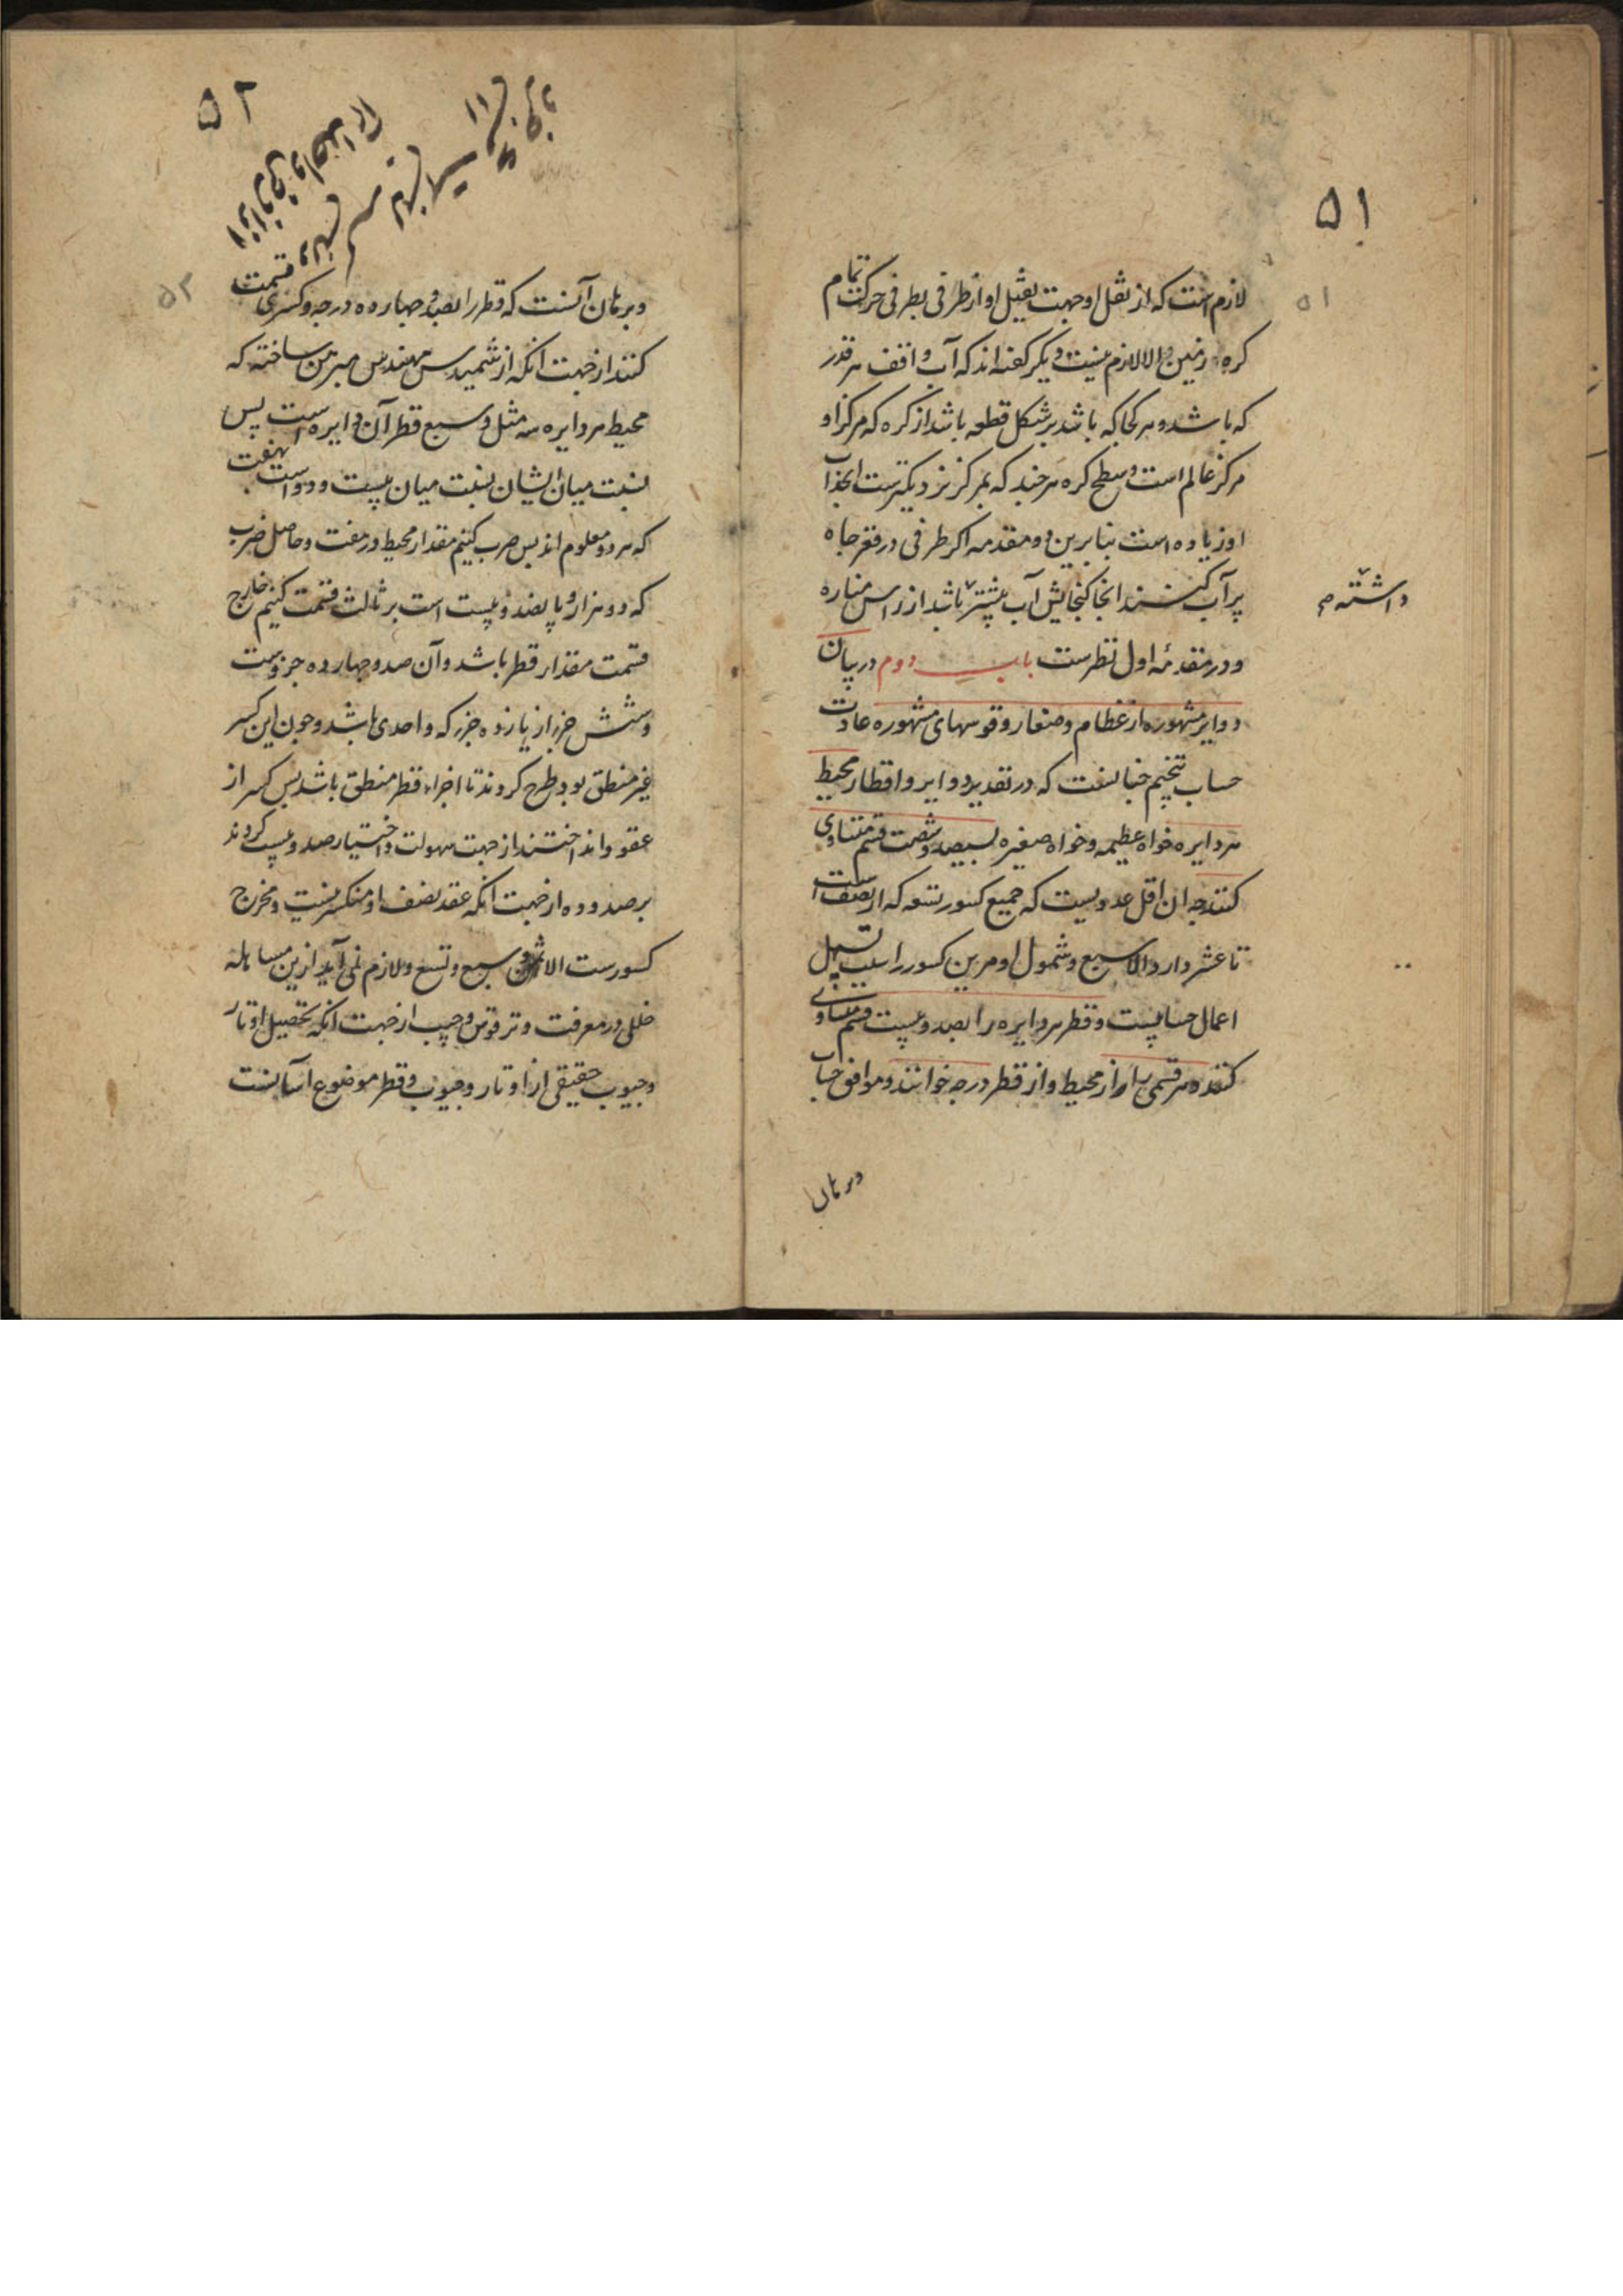 ۵۱
۵۱
لازم است که از ثقل او جهت ثقیل او از طرفی بطرفی حرکت تمام
کره زمین والا لازم نیست و دیگر گفته‌اند که آب واقف هر قدر
که باشد و هر کجا که باشد بر شکل قطعه باشد از کره که مرکز او
مرکز عالم است و سطح کره هر چند که بمرکز نزدیکترست انجذاب
او زیاده است بنابرین دو مقدمه اکر ظرفی در قعر چاه
پر آب کنند انجا کنجایش آب بیشتر باشد از راس مناره
داشته
و در مقدمه اول نظرست باب دوم در بیان
دوایر مشهوره از عظام و صغار و قوسهای مشهوره عادت
حساب تنجیم چنانست که در تقدیر دوایر و اقطار محیط
هر دایره خواه عظیمه و خواه صغیره بسیصد و شصت قسم متساوی
کنند چه ان اقل عددیست که جمیع کسور تسعه که از نصف است
تا عشر دارد الا سبع و شمول او مر این کسور را سبب تسهیل
اعمال حسابیست و قطر هر دایره را بصد و بیست قسم مساوی
کنند و هر قسمی را از محیط و از قطر درجه خوانند و موافق حساب
وبرهان
۵۲
۵۲
وبرهان آنست که قطر را بصد و چهارده درجه و کسری قسمت
کنند از جهت انکه ارشمیدس مهندس مبرهن ساخته که
محیط هر دایره سه مثل و سبع قطر آن دایره است پس
نسبت میان ایشان نسبت میان بیست و دو است بهفت
که هر دو معلوم اند پس ضرب کنیم مقدار محیط در هفت و حاصل ضرب
که دو هزار و پانصد و بیست است بر ثالث قسمت کنیم خارج
قسمت مقدار قطر باشد و آن صد و چهارده جزوست
و شش جزء از یازده جزء که واحدی باشد و چون این کسر
غیر منطق بود طرح کردند تا اجزاء قطر منطق باشد پس کسر از
عقود انداختند از جهت سهولت و اختیار صد و بیست کردند
بر صد و ده از جهت انکه عقد نصف او منکسر نیست و مخرج
کسورست الا ثمن و سبع و تسع و لازم نمی آید ازین مساهله
خللی در معرفت وتر قوس و جیب از جهت انکه تحصیل اوتار
و جیوب حقیقی از اوتار و جیوب و قطر موضوع آسانست